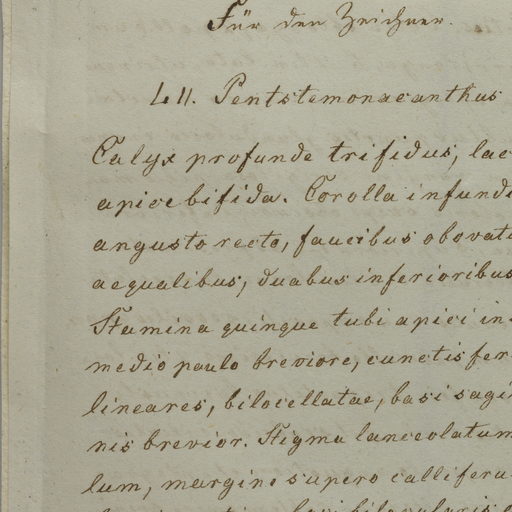 Für den Zeichner.
411. Pentstemonacanthus
Calyx profunde trifidus, lac
apice bifida. Corolla infundi
angusto recto, faucibus obovati
aequalibus, duabus inferioribus
Stamina quinque tubi apici in
medio paulo breviore, cunctis fer
lineares, bilocellatae, basi sagi
nis brevior. Stigma lanceolatum
lum, margine supero calliferu